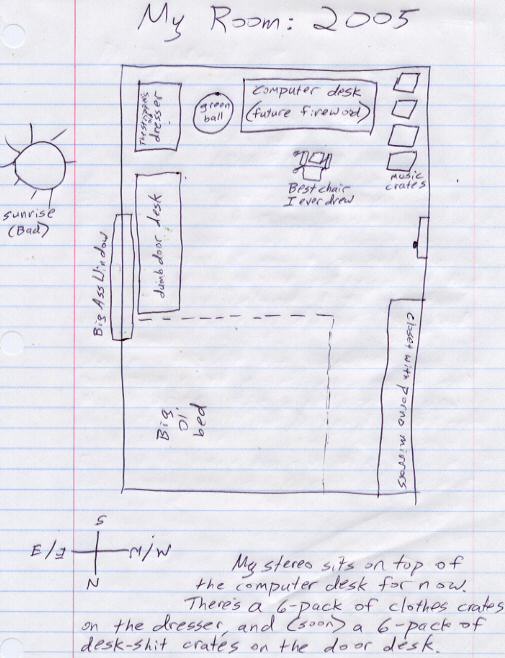 My Room: 2005
Computer desk
(future firewood)
green
ball
dresser
Best chair
I ever drew
music
crates
sunrise
(Bad)
Big Ass Window
dumb door desk
Closet with porno mirrors
Big
Ol'
bed
S
E/I
M/W
N
My stereo sits on top of
the computer desk for now.
There's a 6-pack of clothes crates
on the dresser, and (soon) a 6-pack of
desk-shit crates on the door desk.